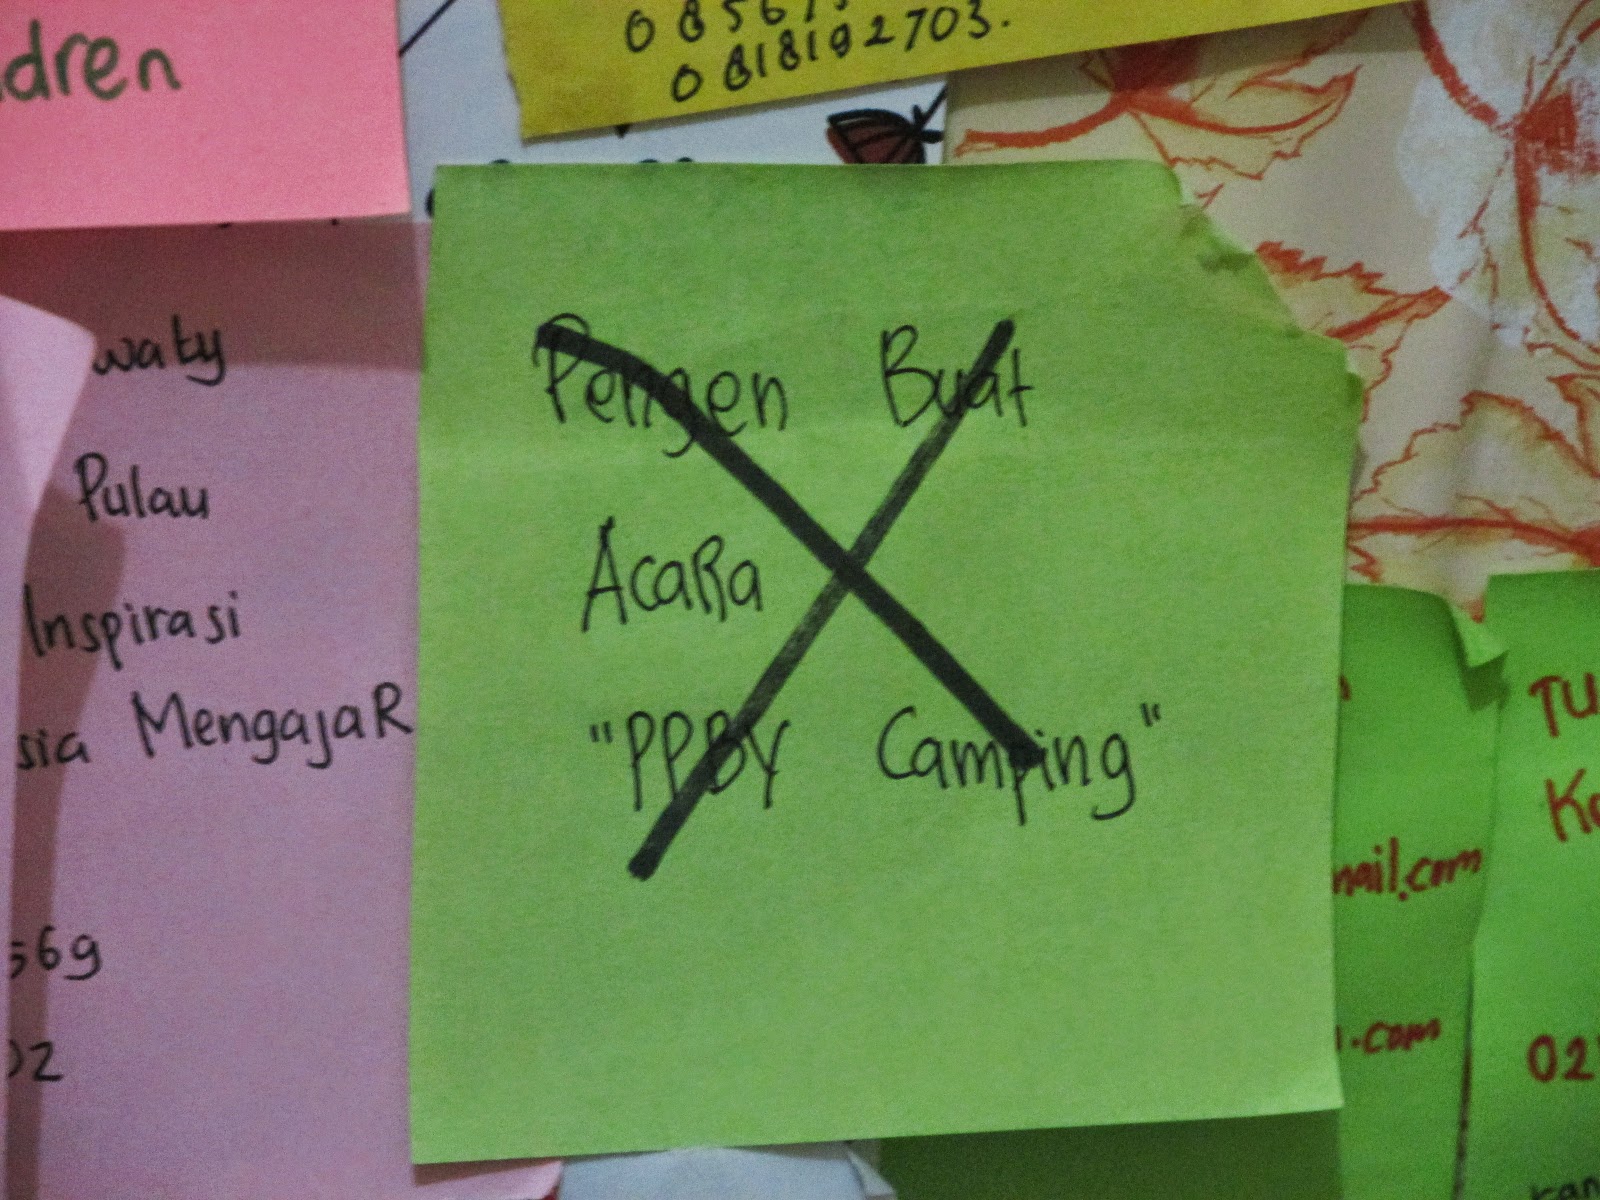 dren
0818192703.
waty
Pulau
Inspirasi
sia MengajaR
569
02
Pengen Buat
AcaRa
"PPBY Camping"
mail.com
.com
TU
Ka
02